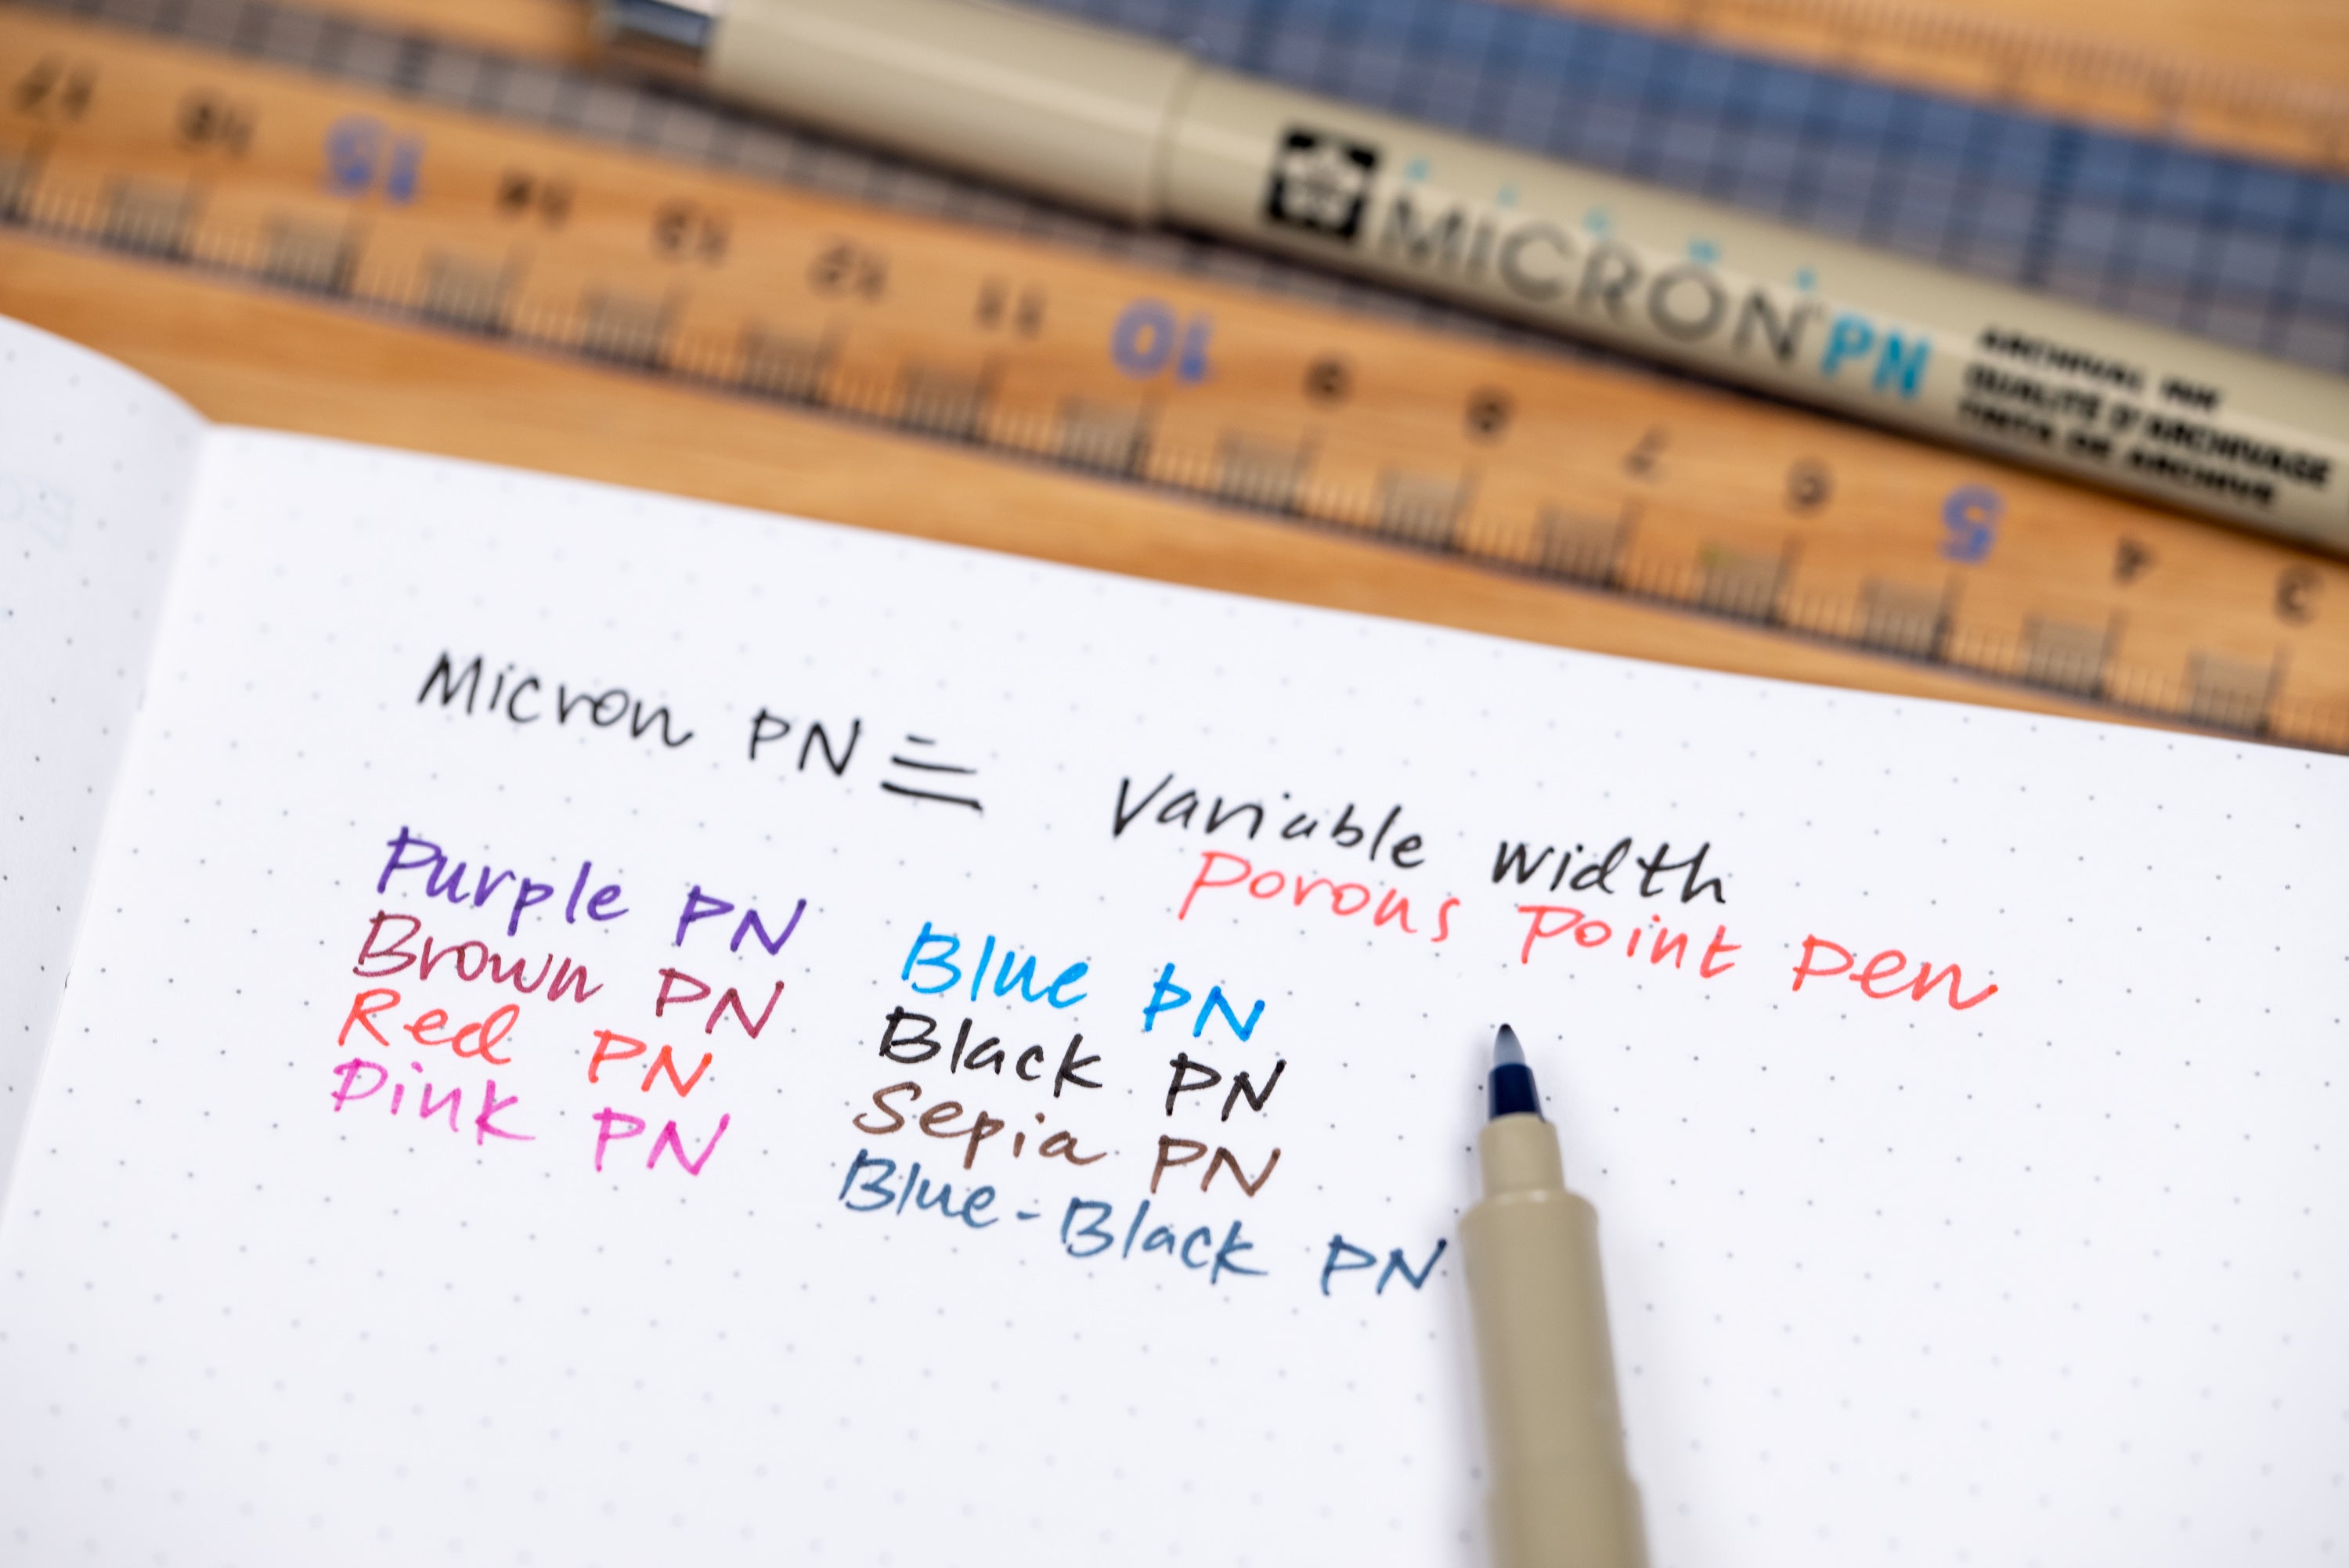 17 16 15 14 13 12 11 10 9 8 7 6 5 4 3
MICRON PN
ARCHIVAL INK
QUALITÉ D'ARCHIVAGE
TINTA DE ARCHIVE
Micron PN
Variable width
Porous Point Pen
Purple PN
Brown PN
Red PN
Pink PN
Blue PN
Black PN
Sepia PN
Blue-Black PN